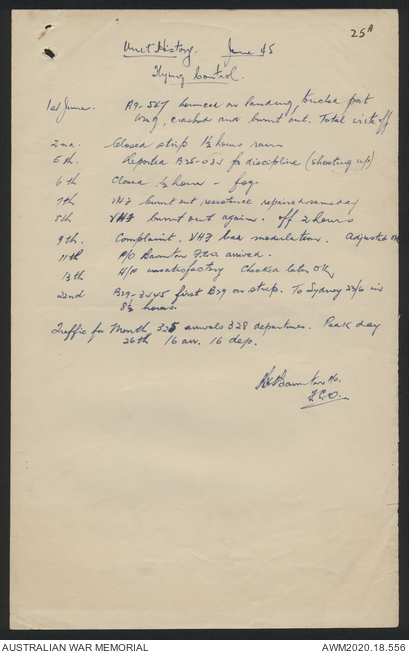 25A
Unit History. June 45
Flying Control.
1st June. A9-567 bounced on landing, touched port
wing, crashed and burnt out. Total write off
2nd. Closed strip 1½ hours rain
5th. Reported B25-034 for discipline (shooting up)
6th Closed ½ hour - fog.
7th VHF burnt out resistance repaired same day
8th VHF burnt out again. Off 2 hours
9th. Complaint. VHF bad modulation. Adjusted
11th P/O Barnton F.C.O. arrived.
13th H/F unsatisfactory Checked later OK
22nd B29-3445 first B29 on strip. To Sydney 23/6 in
8½ hours.
Traffic for Month 325 arrivals 328 departures. Peak day
26th 16 arr. 16 dep.
Barnton P/O.
F.C.O.
AUSTRALIAN WAR MEMORIAL
AWM2020.18.556